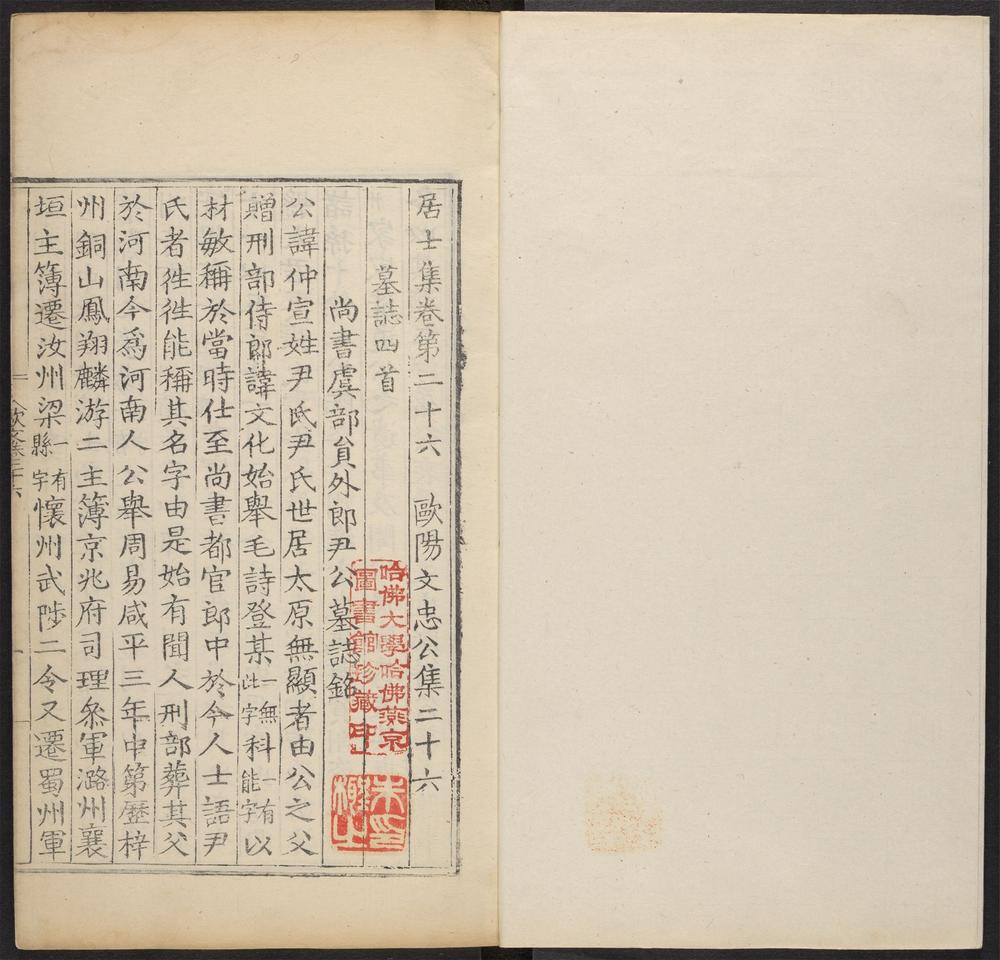 居士集卷第二十六　歐陽文忠公集二十六
墓誌四首
尚書虞部貟外郎尹公墓誌銘
公諱仲宣姓尹氏尹氏世居太原無顯者由公之父
贈刑部侍郎諱文化始舉毛詩登某一無此字科一有能字以
材敏稱於當時仕至尚書都官郎中於今人士語尹
氏者徃徃能稱其名字由是始有聞人刑部葬其父
於河南今爲河南人公舉周易咸平三年中第歷梓
州銅山鳳翔麟游二主簿京兆府司理叅軍潞州襄
垣主簿遷汝州梁一有縣字懷州武陟二令又遷蜀州軍
哈佛大學哈佛燕京
圖書館珍藏印